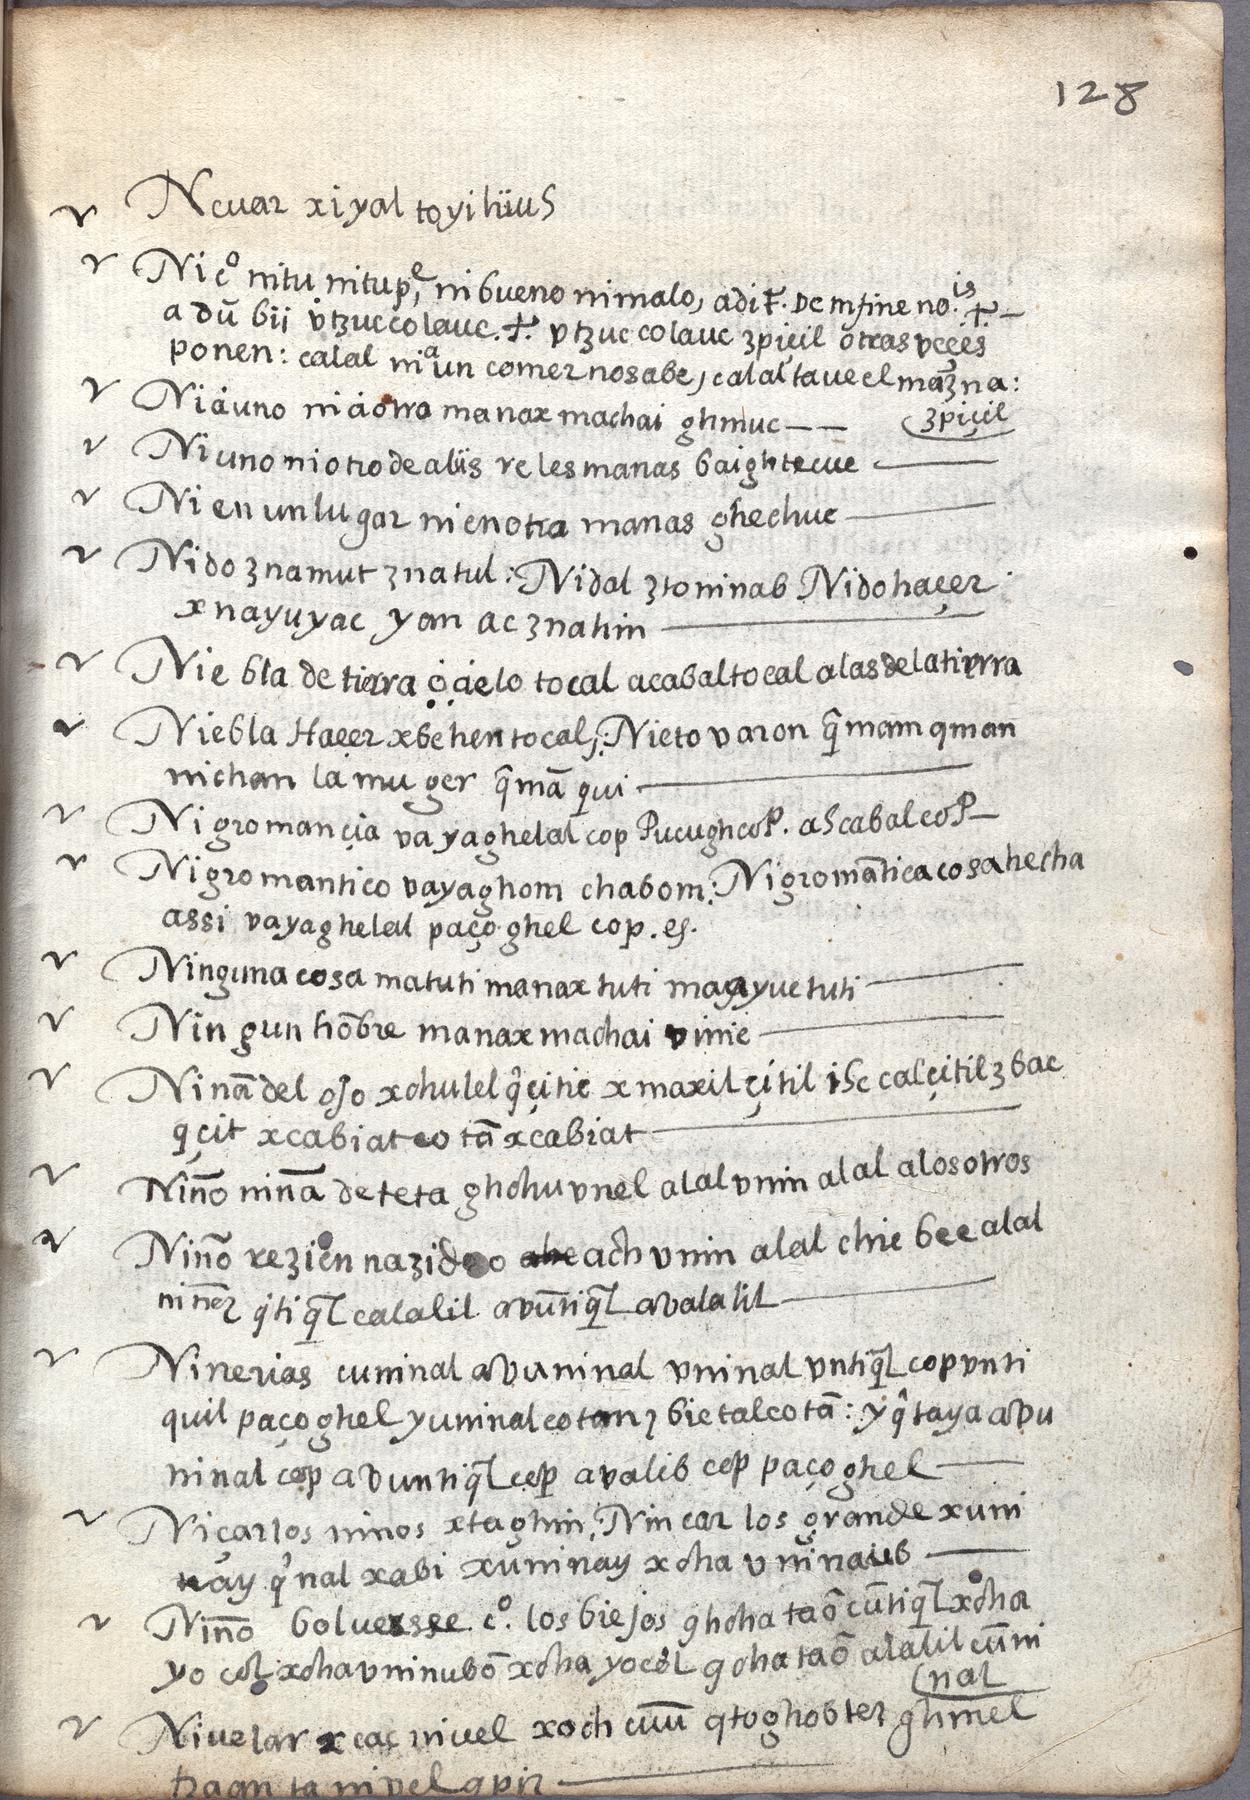 128
Nevar xiyal toyiliius
Ni c.º nitu nitup.e, ni bueno ni malo, adit. De m fine no.is +
a dū bii vtzuc colauc. + vtzuc colauc zpiçil otras veçes
ponen: calal ni a un comer no sabe, calal taveel mazna:
Ni a uno ni a otro manax machai ghmuc —— zpiçil
Ni uno ni otro de aliis re les manas baightecue
Ni en un lugar ni en otra manas ghechuc
Nido znamut znatul: Nidal ztoninab Nido haçer
xnayuyac yan ac znahin
Niebla de tierra o çielo tocal acabal tocal alas de la tierra
Niebla Haçer xbehen tocal; Nieto varon q̃ mam qman
nichan la muger q̃ mã qui
Nigromançia vayaghelal cop Pucugh cop. ascabal cop
Nigromantico vayaghom chabom: Nigromãtica cosa hecha
assi vayaghelal paçoghel cop. es.
Ninguna cosa matuti manax tuti mayuc tuti
Ningun hõbre manax machai vinic
Ninã del ojo xchulel q̃ çitic xmaxil çitil isc cal çitil z bac
q çit xcabiat co tã xcabiat
Niño niña de teta ghchuunel alal unin alal a los otros
Niño rezien nazido o ach unin alal chic bee alal
niñez q̃tiq̃l calalil avũtiq̃l avalalil
Niñerias cuninal avuninal uninal untiq̃l cop unti
quil paçoghel yuninal cotan z bictal cotã: y q̃ taya avu
ninal cop avuntiq̃l cop avalib cop paçoghel
Niçar los niños xtaghin: Nin car los grande xuni
nay q̃nal xabi xuninay xcha uninaub
Niño bolversse c.º los biejos ghcha taõ cũtiq̃l xcha
yo col xcha uninubõ xcha yocol gcha taõ alalil cũni
nal
Nivelar xcac nivel xoch cuũ qtoghobtez ghmel
tzaan ta nivel q piz